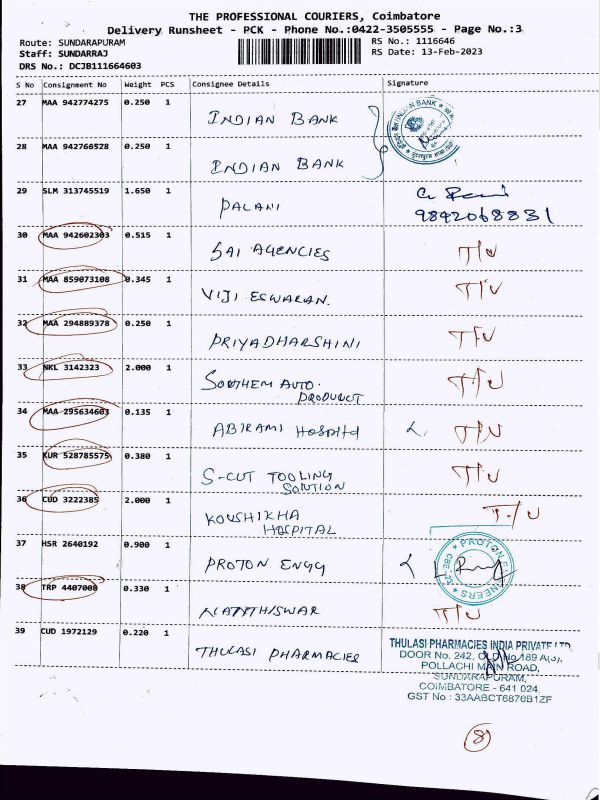 THE PROFESSIONAL COURIERS, Coimbatore
Delivery Runsheet - PCK - Phone No.:0422-3505555 - Page No.:3
Route: SUNDARAPURAM RS No.: 1116646
Staff: SUNDARRAJ RS Date: 13-Feb-2023
DRS No.: DCJB111664603
S No Consignment No Weight PCS Consignee Details Signature
27 MAA 942774275 0.250 1 INDIAN BANK
INDIAN BANK
28 MAA 942766528 0.250 1 INDIAN BANK
29 SLM 313745519 1.650 1 PALANI
9842068831
30 MAA 942602303 0.515 1 SAI AGENCIES T/U
31 MAA 859073108 0.345 1 VIJI ESWARAN. T/U
32 MAA 294889378 0.250 1 PRIYADHARSHINI T/U
33 NKL 3142323 2.000 1 SOUTHEM AUTO. T/U
PRODUCT
34 MAA 295634603 0.135 1 ABIRAMI HOSPITAL T/U
35 KUR 528785575 0.380 1 S-CUT TOOLING T/U
SOLUTION
36 CUD 3222385 2.000 1 KOUSHIKHA T/U
HOSPITAL
37 HSR 2640192 0.900 1 PROTON ENGG
PROTON ENGINEERS
38 TRP 4407000 0.330 1 T/U
39 CUD 1972129 0.220 1 THULASI PHARMACIES
THULASI PHARMACIES INDIA PRIVATE LTD.
DOOR No. 242, OLD No 189 A(3),
POLLACHI MAIN ROAD,
SUNDARAPURAM,
COIMBATORE - 641 024.
GST No : 33AABCT6870B1ZF
8